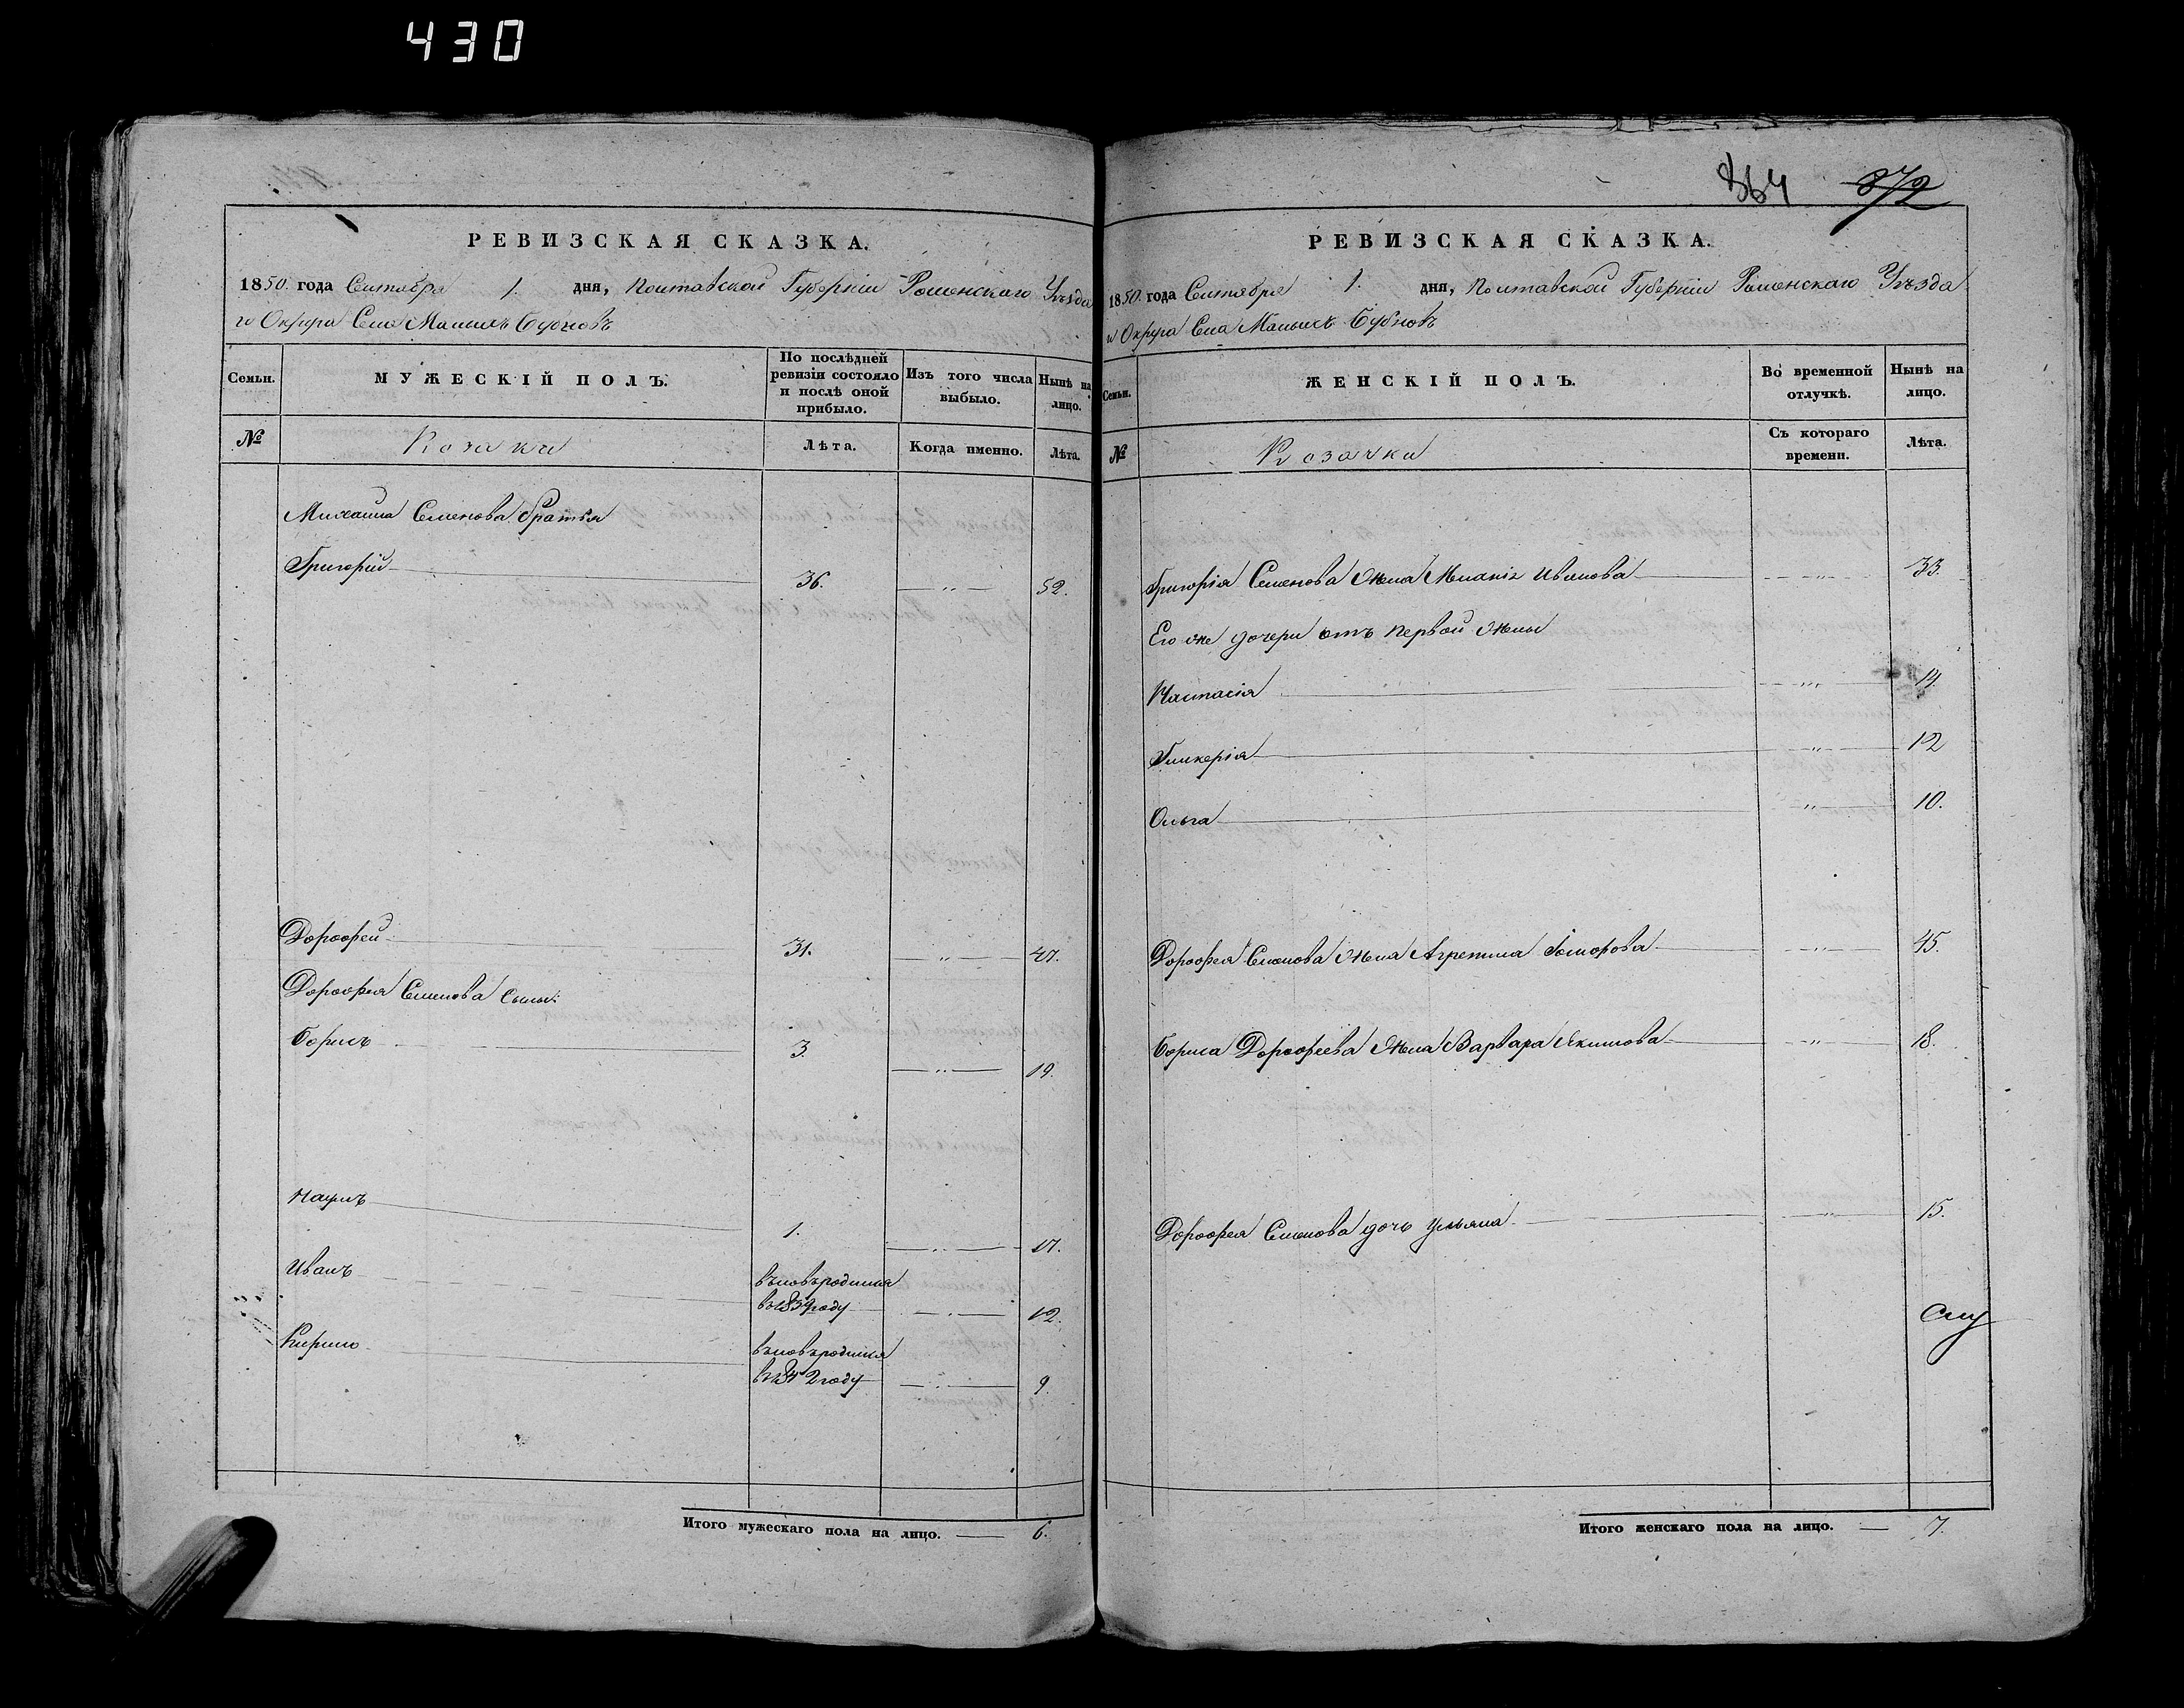 430
864 872
РЕВИЗСКАЯ СКАЗКА.
1850. года Сентября 1. дня, Полтавской Губерніи Роменскаго Уѣзда
и Округа Села Малыхъ Бубновъ
Семьи.
МУЖЕСКІЙ ПОЛЪ.
По послѣдней ревизіи состояло и послѣ оной прибыло.
Изъ того числа выбыло.
Нынѣ на лицо.
№
Козаки
Лѣта.
Когда именно.
Лѣта.
Михаила Семенова братья
Григорій 36. — " — 52.
Дорофей 31. — " — 47.
Дорофея Семенова сыны:
Борисъ 3. — " — 19.
Наумъ 1. — " — 17.
Иванъ вновьродился
въ 1839 году — " — 12.
Кирило вновьродился
въ 1842 году — " — 9.
Итого мужескаго пола на лицо. — 6.
РЕВИЗСКАЯ СКАЗКА.
1850. года Сентября 1. дня, Полтавской Губерніи Роменскаго Уѣзда
и Округа Села Малыхъ Бубновъ
Семьи.
ЖЕНСКІЙ ПОЛЪ.
Во временной отлучкѣ.
Нынѣ на лицо.
№
Козачки
Съ котораго времени.
Лѣта.
Григорія Семенова жена Меланія Иванова — " — 33.
Его же дочери отъ первой жены
Настасія — " — 14.
Гликерія — " — 12
Ольга — " — 10.
Дорофея Семенова жена Агрепина — " — 45.
Бориса Дорофеева жена Варвара Якимова — " — 18.
Дорофея Семенова дочь Ульяна — " — 15.
Итого женскаго пола на лицо. — 7.